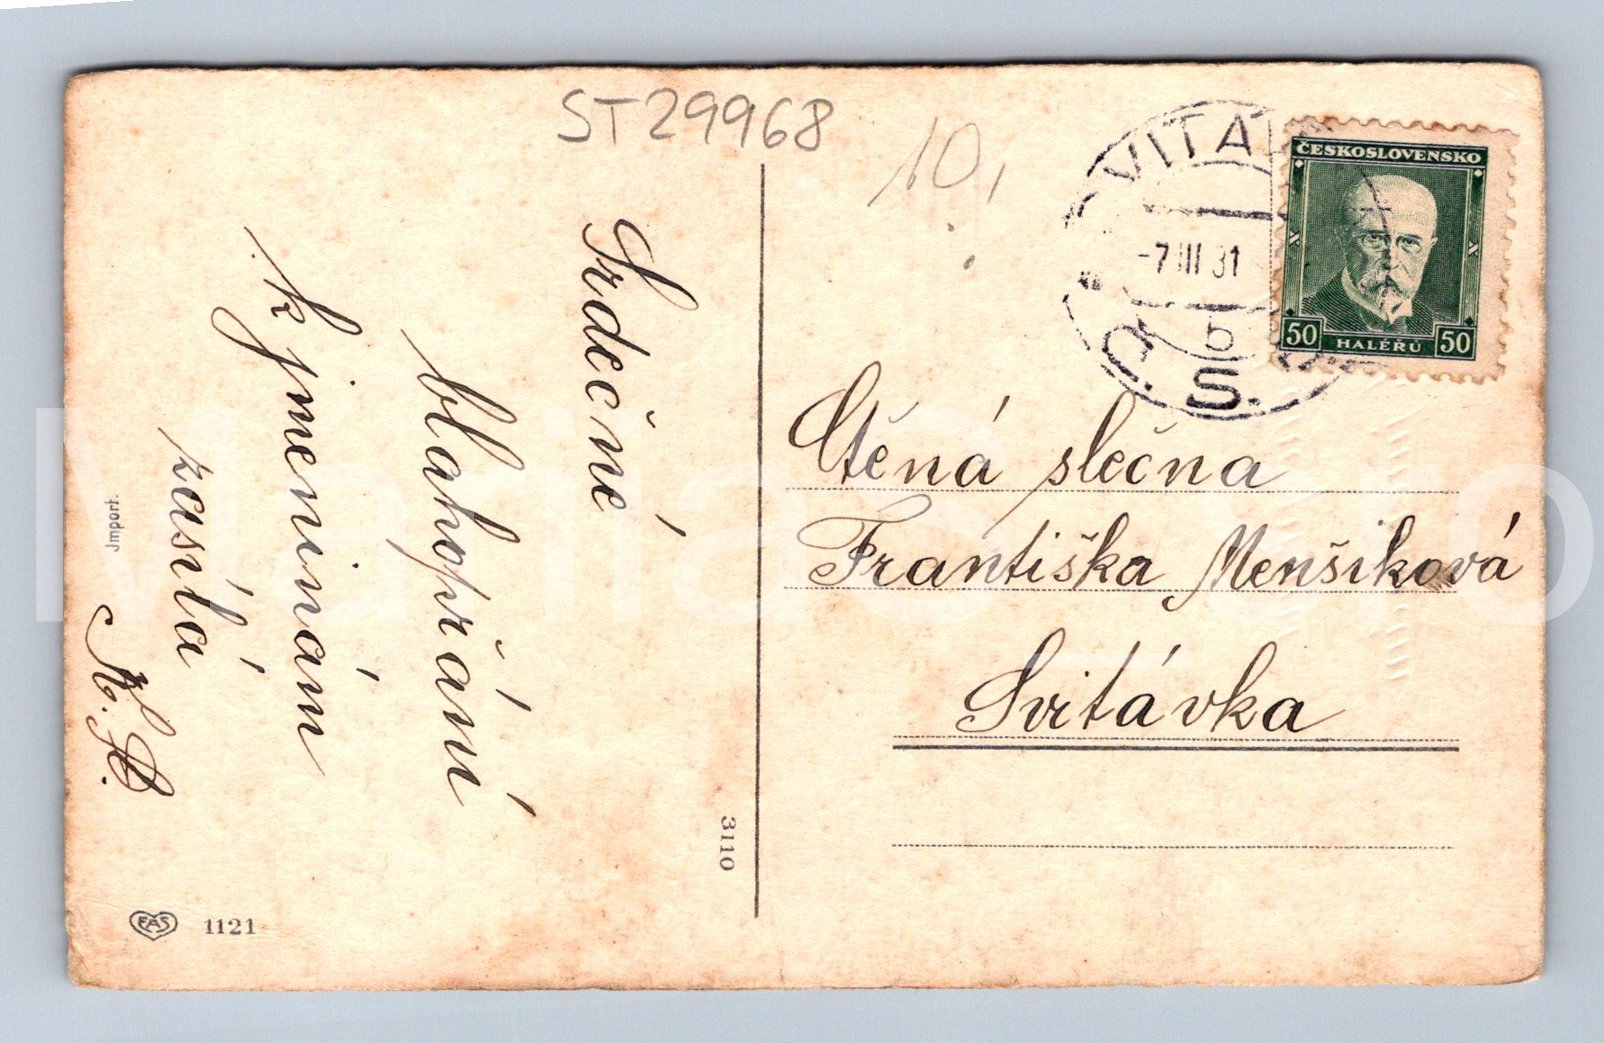 ST29968
10,
Srdečné
blahopřání
k jmeninám
zasílá
Jmport.
EAS 1121
3110
VITAV
-7 III 31
b
Č. S.
ČESKOSLOVENSKO
50 HALÉŘŮ 50
Ctěná slečna
Františka Menšiková
Svitávka